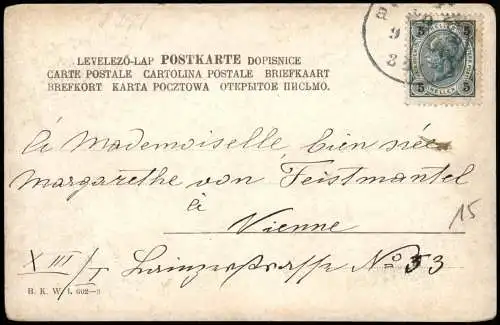 LEVELEZŐ-LAP POSTKARTE DOPISNICE
CARTE POSTALE CARTOLINA POSTALE BRIEFKAART
BREFKORT KARTA POCZTOWA ОТКРЫТОЕ ПИСЬМО.
5 5
5 5
à Mademoiselle bien née
Margarethe von Feistmantel
à
Vienne
15
XIII/I Lainzerstrasse No 53
B. K. W. I. 602–3